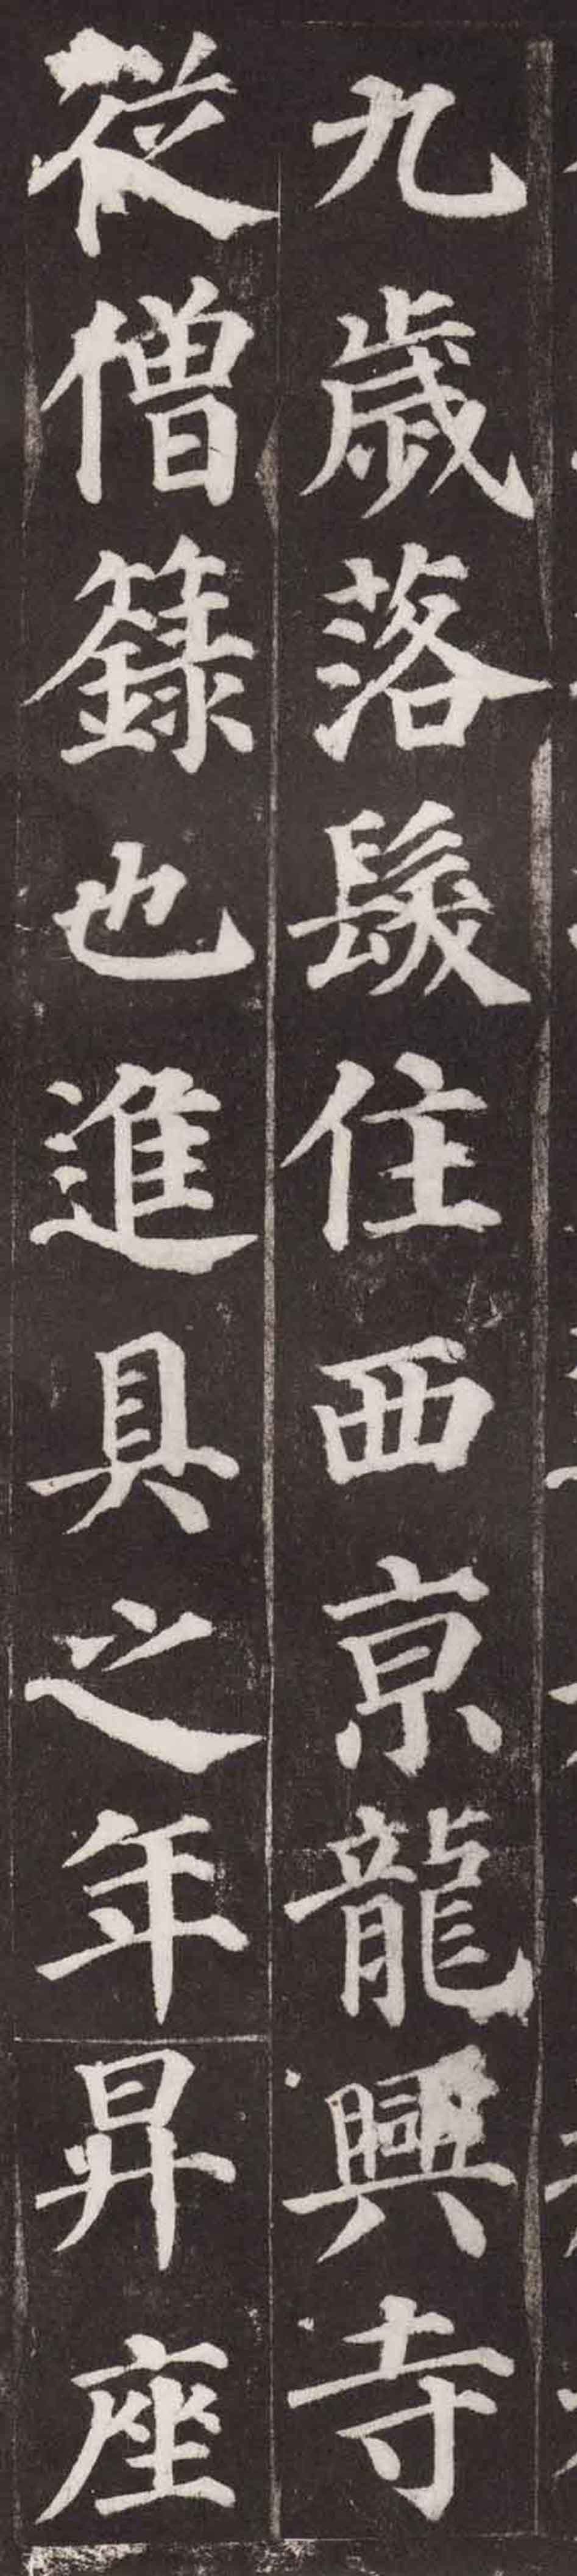 九歲落髮住西京龍興寺
從僧籙也進具之年昇座